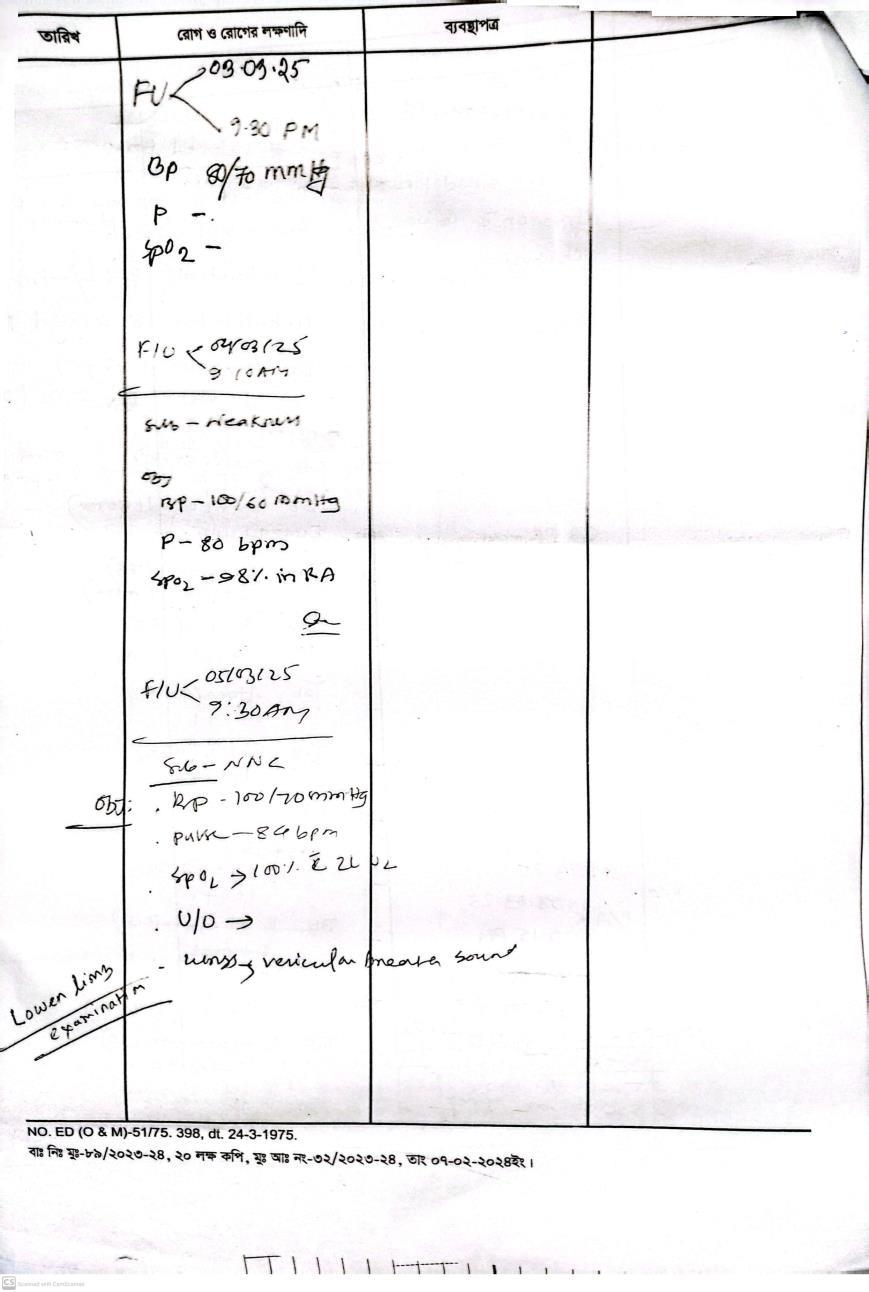 তারিখ
রোগ ও রোগের লক্ষণাদি
ব্যবস্থাপত্র
FU 03.03.25
9.30 PM
BP 80/70 mmHg
P -.
SpO2 -
F/U 04/03/25
9 10AM
Sub - Weakness
Obj
BP - 100/60 mmHg
P - 80 bpm
SpO2 - 98% in RA
F/U 05/03/25
9:30AM
Sub - NNC
Obj: . BP - 100/70 mmHg
. pulse - 84 bpm
. SpO2 → 100% c̄ 2L O2
. U/O →
- Lungs vericular breath sound
Lower limb
examination
NO. ED (O & M)-51/75. 398, dt. 24-3-1975.
বাঃ নিঃ মুঃ-৮৯/২০২৩-২৪, ২০ লক্ষ কপি, মুঃ আঃ নং-৩২/২০২৩-২৪, তাং ০৭-০২-২০২৪ইং।
CS Scanned with CamScanner